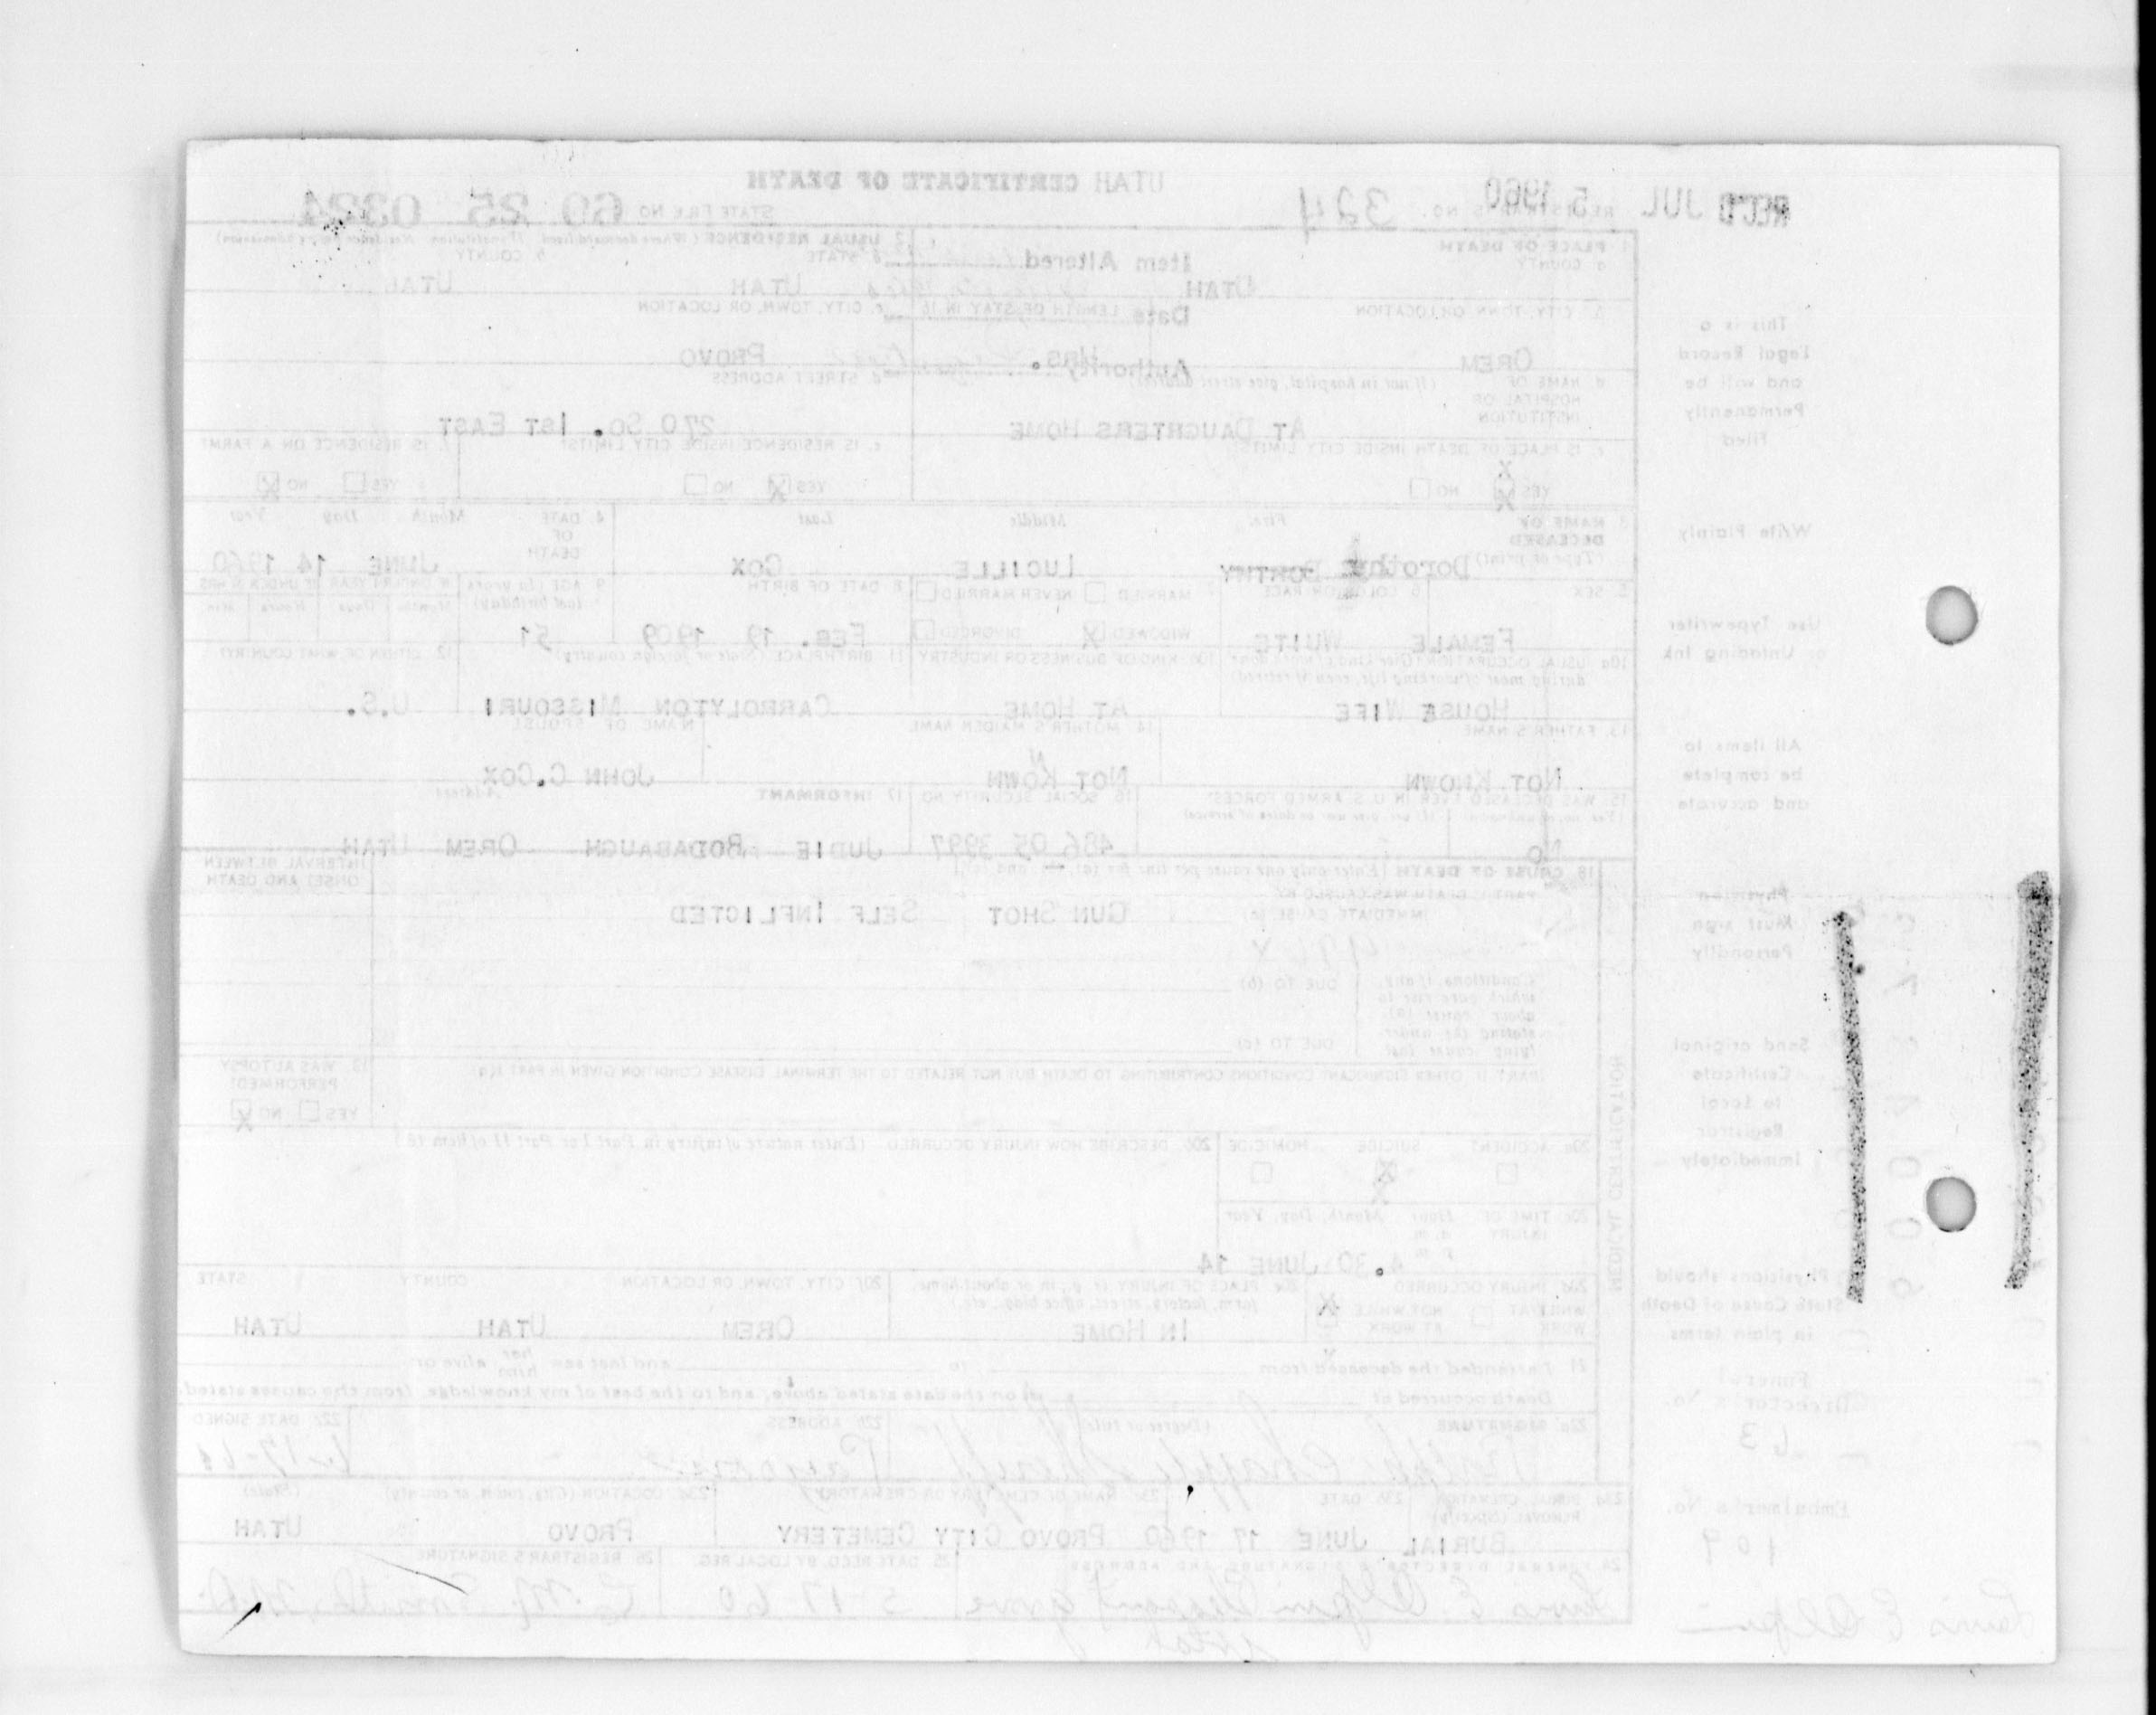 REC'D JUL 5 1960
UTAH CERTIFICATE OF DEATH
REGISTRAR'S NO. 324
STATE FILE NO 60 25 0324
This is a
Legal Record
and will be
Permanently
Filed
Write Plainly
Use Typewriter
or Unfading Ink
All items to
be complete
and accurate
Physician
Must sign
Personally
Send original
Certificate
to Local
Registrar
Immediately
Physicians should
State Cause of Death
in plain terms
Funeral
Director's No.
63
Embalmer's No.
109
1. PLACE OF DEATH
a. COUNTY
UTAH
Item Altered
Date
Authority
2. USUAL RESIDENCE (Where deceased lived. If institution: Residence before admission)
a. STATE UTAH
b. COUNTY UTAH
b. CITY, TOWN, OR LOCATION
OREM
LENGTH OF STAY IN 1b
HRS.
c. CITY, TOWN, OR LOCATION
PROVO
d. NAME OF HOSPITAL OR INSTITUTION (If not in hospital, give street address)
AT DAUGHTERS HOME
d. STREET ADDRESS
270 SO. 1ST EAST
e. IS PLACE OF DEATH INSIDE CITY LIMITS?
YES X NO
e. IS RESIDENCE INSIDE CITY LIMITS?
YES X NO
f. IS RESIDENCE ON A FARM?
YES NO X
3. NAME OF DECEASED (Type or print)
First Middle Last
DORTHY LUCILLE COX
4. DATE OF DEATH
Month Day Year
JUNE 14 1960
5. SEX
FEMALE
6. COLOR OR RACE
WHITE
MARRIED NEVER MARRIED
WIDOWED X DIVORCED
8. DATE OF BIRTH
FEB. 19 1909
9. AGE (In years last birthday)
51
IF UNDER 1 YEAR IF UNDER 24 HRS
Months Days Hours Min.
10a. USUAL OCCUPATION (Give kind of work done during most of working life, even if retired)
HOUSE WIFE
10b. KIND OF BUSINESS OR INDUSTRY
AT HOME
11. BIRTHPLACE (State or foreign country)
CARROLYTON MISSOURI
12. CITIZEN OF WHAT COUNTRY?
U.S.
13. FATHER'S NAME
NOT KNOWN
14. MOTHER'S MAIDEN NAME
NOT KOWN
NAME OF SPOUSE
JOHN C.COX
15. WAS DECEASED EVER IN U.S. ARMED FORCES?
(Yes, no, or unknown) (If yes, give war or dates of service)
NO
16. SOCIAL SECURITY NO.
486 05 3997
17. INFORMANT Address
JUDIE RODABAUGH OREM UTAH
18. CAUSE OF DEATH [Enter only one cause per line for (a), (b), and (c).]
PART I. DEATH WAS CAUSED BY:
IMMEDIATE CAUSE (a)
GUN SHOT SELF INFLICTED
INTERVAL BETWEEN ONSET AND DEATH
Conditions, if any,
which gave rise to
above cause (a),
stating the under-
lying cause last
DUE TO (b)
DUE TO (c)
PART II. OTHER SIGNIFICANT CONDITIONS CONTRIBUTING TO DEATH BUT NOT RELATED TO THE TERMINAL DISEASE CONDITION GIVEN IN PART I(a)
19. WAS AUTOPSY PERFORMED?
YES NO X
MEDICAL CERTIFICATION
20a. ACCIDENT SUICIDE X HOMICIDE
20b. DESCRIBE HOW INJURY OCCURRED. (Enter nature of injury in Part I or Part II of item 18.)
20c. TIME OF INJURY Hour Month, Day, Year
a. m.
p. m.
4.30 JUNE 14
20d. INJURY OCCURRED
WHILE AT WORK NOT WHILE AT WORK X
20e. PLACE OF INJURY (e. g., in or about home, farm, factory, street, office bldg., etc.)
IN HOME
20f. CITY, TOWN, OR LOCATION COUNTY STATE
OREM UTAH UTAH
21. I attended the deceased from to and last saw her him alive on
Death occurred at m on the date stated above, and to the best of my knowledge, from the causes stated.
22a. SIGNATURE (Degree or title)
Chapple Sheriff
22b. ADDRESS
22c. DATE SIGNED
6-17-60
23a. BURIAL, CREMATION, REMOVAL (Specify)
BURIAL
23b. DATE
JUNE 17 1960
23c. NAME OF CEMETERY OR CREMATORY
PROVO CITY CEMETERY
23d. LOCATION (City, town, or county) (State)
PROVO UTAH
24. FUNERAL DIRECTOR'S SIGNATURE AND ADDRESS
Pleasant Grove
Utah
25. DATE RECD. BY LOCAL REG.
5-17 60
26. REGISTRAR'S SIGNATURE
Smith, M.D.